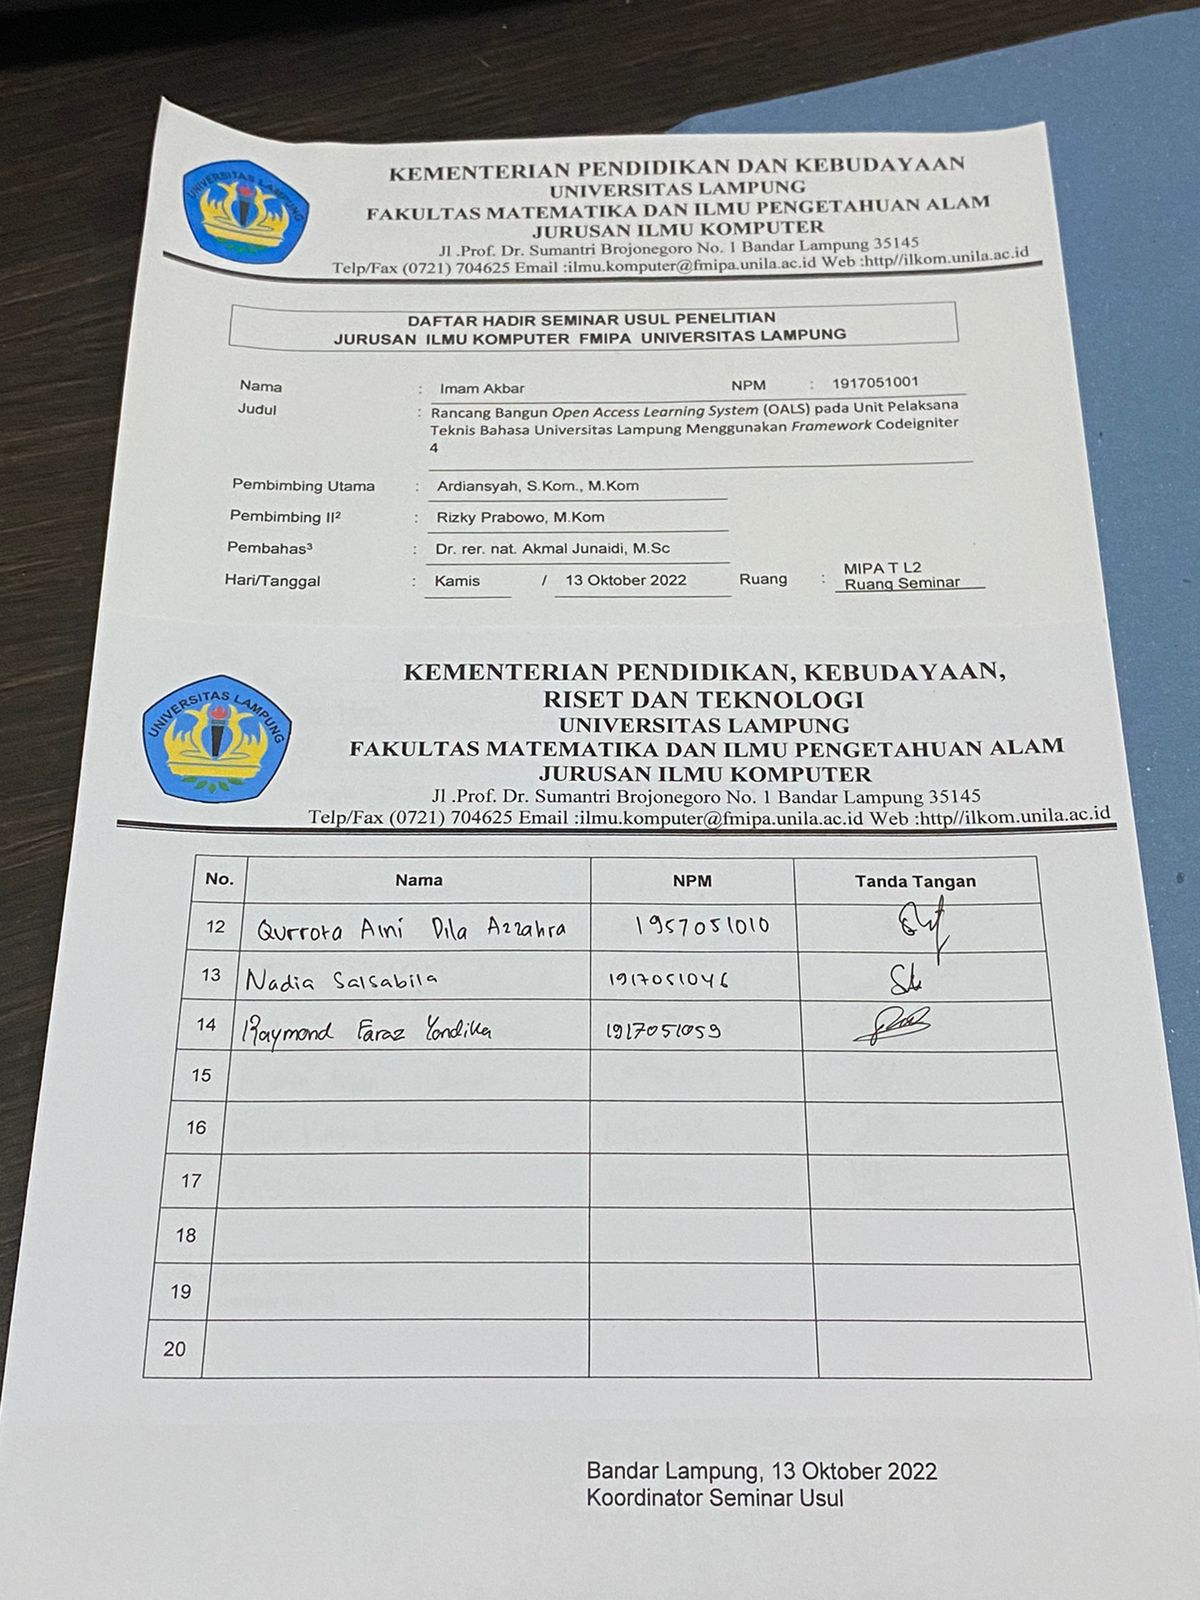 UNIVERSITAS LAMPUNG
KEMENTERIAN PENDIDIKAN DAN KEBUDAYAAN
UNIVERSITAS LAMPUNG
FAKULTAS MATEMATIKA DAN ILMU PENGETAHUAN ALAM
JURUSAN ILMU KOMPUTER
Jl .Prof. Dr. Sumantri Brojonegoro No. 1 Bandar Lampung 35145
Telp/Fax (0721) 704625 Email :ilmu.komputer@fmipa.unila.ac.id Web :http//ilkom.unila.ac.id
DAFTAR HADIR SEMINAR USUL PENELITIAN
JURUSAN ILMU KOMPUTER FMIPA UNIVERSITAS LAMPUNG
Nama : Imam Akbar NPM : 1917051001
Judul : Rancang Bangun Open Access Learning System (OALS) pada Unit Pelaksana
Teknis Bahasa Universitas Lampung Menggunakan Framework Codeigniter
4
Pembimbing Utama : Ardiansyah, S.Kom., M.Kom
Pembimbing II² : Rizky Prabowo, M.Kom
Pembahas³ : Dr. rer. nat. Akmal Junaidi, M.Sc
Hari/Tanggal : Kamis / 13 Oktober 2022 Ruang : MIPA T L2
Ruang Seminar
UNIVERSITAS LAMPUNG
KEMENTERIAN PENDIDIKAN, KEBUDAYAAN,
RISET DAN TEKNOLOGI
UNIVERSITAS LAMPUNG
FAKULTAS MATEMATIKA DAN ILMU PENGETAHUAN ALAM
JURUSAN ILMU KOMPUTER
Jl .Prof. Dr. Sumantri Brojonegoro No. 1 Bandar Lampung 35145
Telp/Fax (0721) 704625 Email :ilmu.komputer@fmipa.unila.ac.id Web :http//ilkom.unila.ac.id
No. Nama NPM Tanda Tangan
12 Qurrota Aini Dila Azzahra 1957051010
13 Nadia Salsabila 1917051046
14 Raymond Faraz Yondika 1917051059
15
16
17
18
19
20
Bandar Lampung, 13 Oktober 2022
Koordinator Seminar Usul